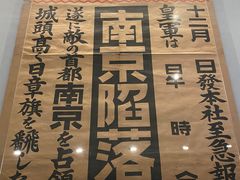 十二月 日發本社至急報
皇軍は 日午 時
南京陥落
遂に敵の首都南京を占領
城頭高く日章旗を飜し